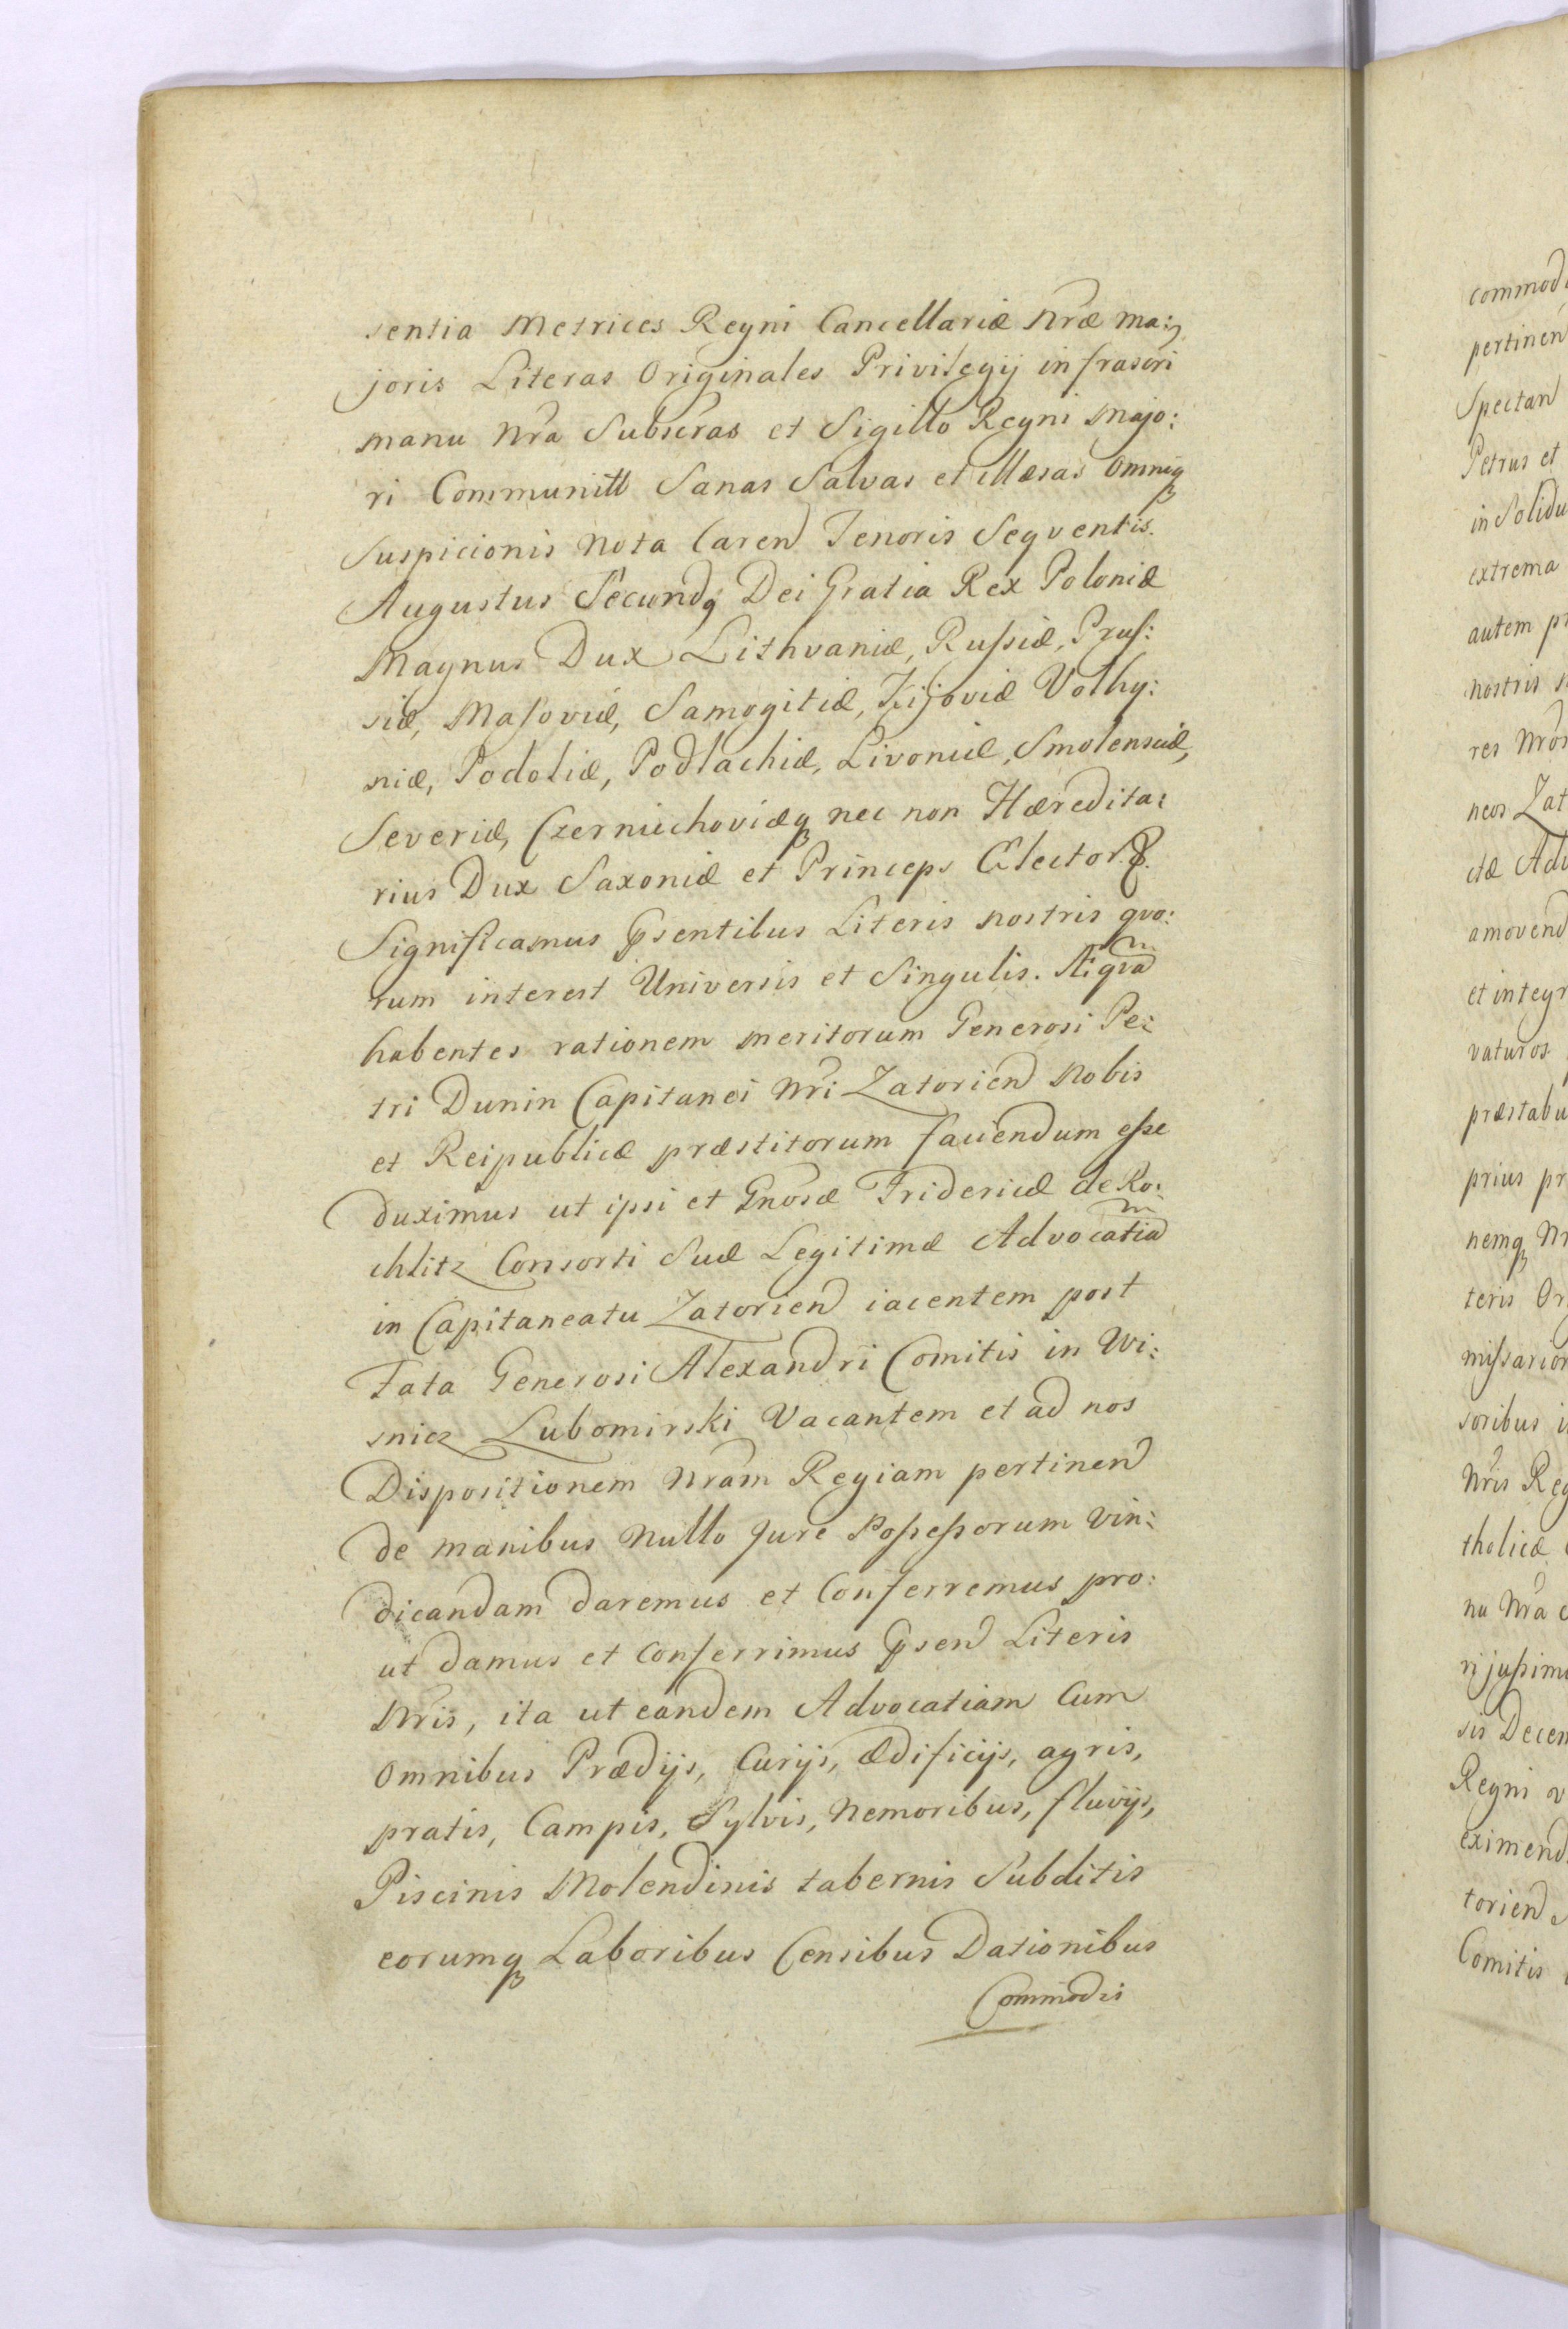 sentia Metrices Regni Cancellariæ Nræ ma:
joris Literas Originales Privilegij infrascri
manu Nra Subscras et Sigillo Regni Majo:
ri Communitt Sanas Salvas et illæsas Omniq
Suspicionis Nota Caren Tenoris Seqventis.
Augustus Secundq Dei Gratia Rex Poloniæ
Magnus Dux Lithvaniæ, Rußiæ, Pruſ:
siæ, Maſoviæ, Samogitiæ, Kijoviæ Volhy:
niæ, Podoliæ, Podlachiæ, Livoniæ, Smolensciæ,
Severiæ, Czerniechoviæq nec non Hæredita:
rius Dux Saxoniæ et Princeps Elector. &.
Significamus Psentibus Literis nostris qvo:
rum interest Universis et Singulis. Siqvidem
habentes rationem meritorum Generosi Pe:
tri Dunin Capitanei Nri Zatorien Nobis
et Reipublicæ præstitorum faciendum eße
duximus ut ipsi et Gnosæ Fridericæ de Ro:
chlitz Consorti Suæ Legitimæ Advocatiam
in Capitaneatu Zatorien iacentem post
Fata Generosi Alexandri Comitis in Wi:
snicz Lubomirski Vacantem et ad nos
Dispositionem Nram Regiam pertinen
de manibus Nullo Jure Poßeßorum vin:
dicandam daremus et Conferremus pro:
ut damus et Conferrimus Psen Literis
Nris, ita ut eandem Advocatiam Cum
Omnibus Prædijs, Curijs, Ædificijs, agris,
pratis, Campis, Sylvis, Nemoribus, fluvijs,
Piscinis Molendinis tabernis Subditis
eorumq Laboribus Censibus Dationibus
Commodis
commod
pertinen
Spectan
Petrus et
in Solidu
extrema
autem pr
nostris
res Nros
neos Zat
ctæ Adv
amovend
et integr
vaturos
præstabu
prius pr
nemq Nr
teris Or
mißarior
soribus i
Nris Reg
tholicæ
nu Nra
ri jußimu
sis Decem
Regni
eximend
torien
Comitis